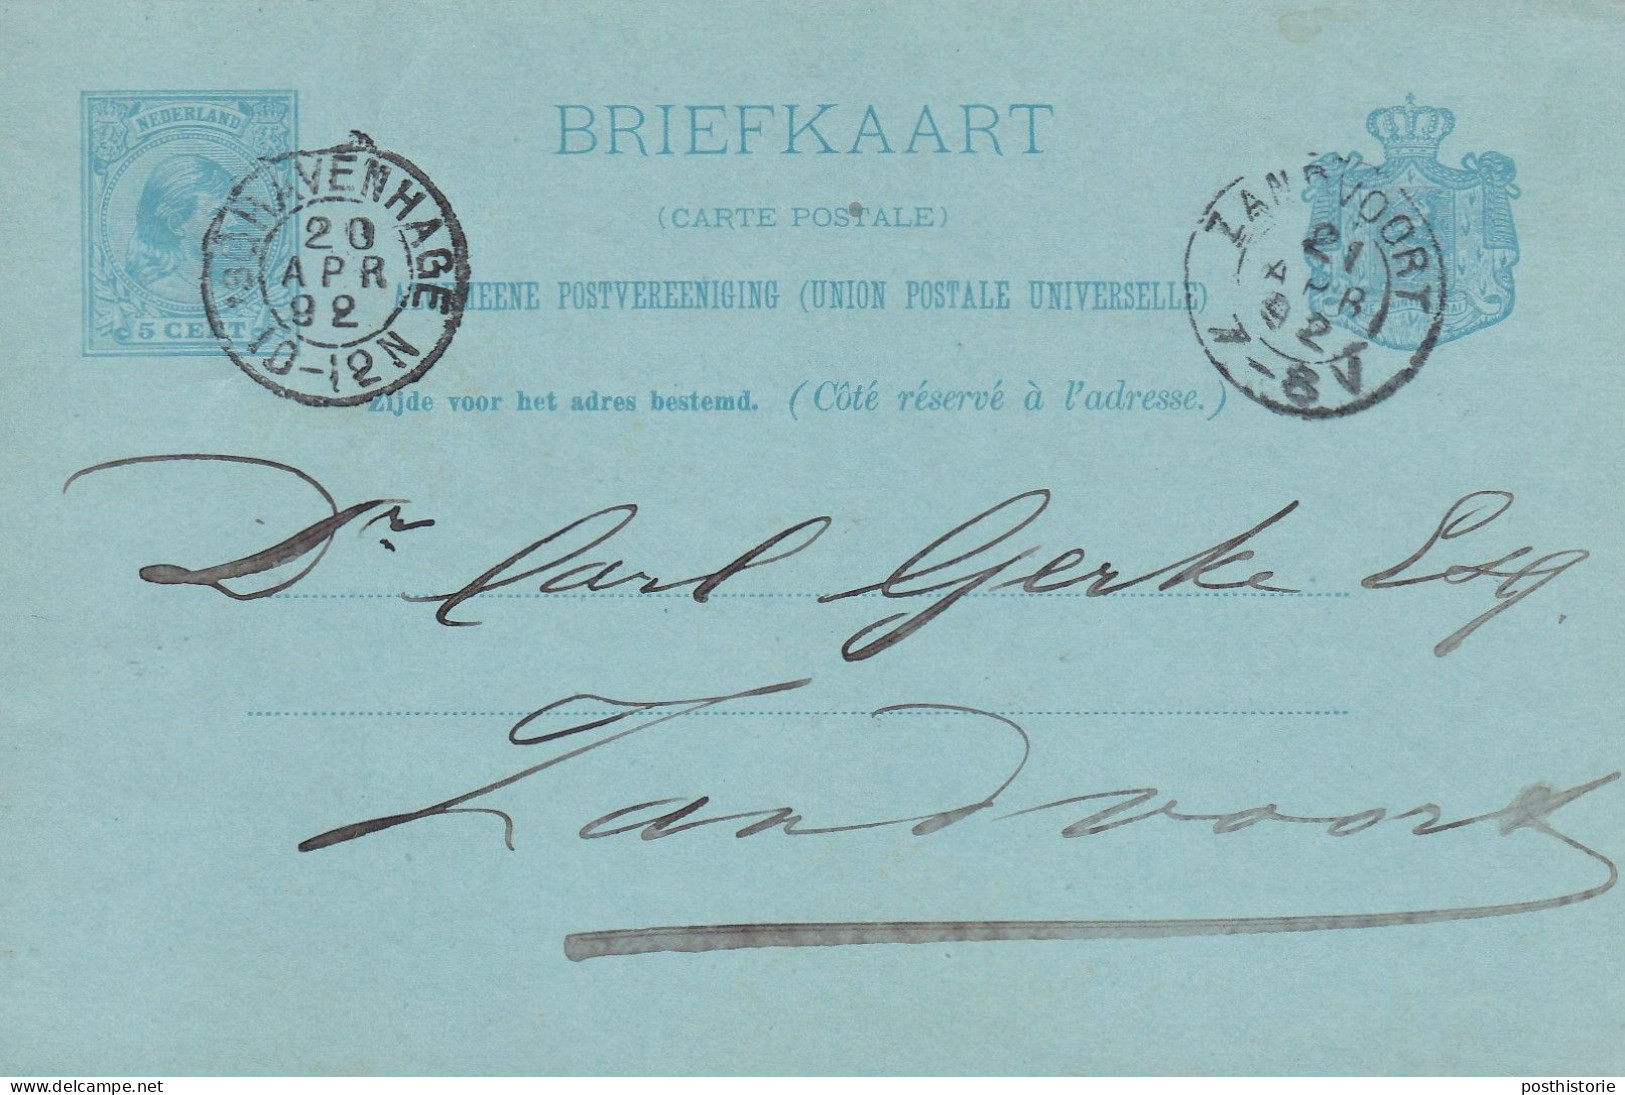 NEDERLAND
5 CENT
'S GRAVENHAGE
20
APR
92
10-12N
BRIEFKAART
(CARTE POSTALE)
ALGEMEENE POSTVEREENIGING (UNION POSTALE UNIVERSELLE)
Zijde voor het adres bestemd. (Côté réservé à l'adresse.)
ZANDVOORT
21
APR
92
7-8V
Dr Carl Gerke Esq.
Zandvoort
delcampe.net
posthistorie